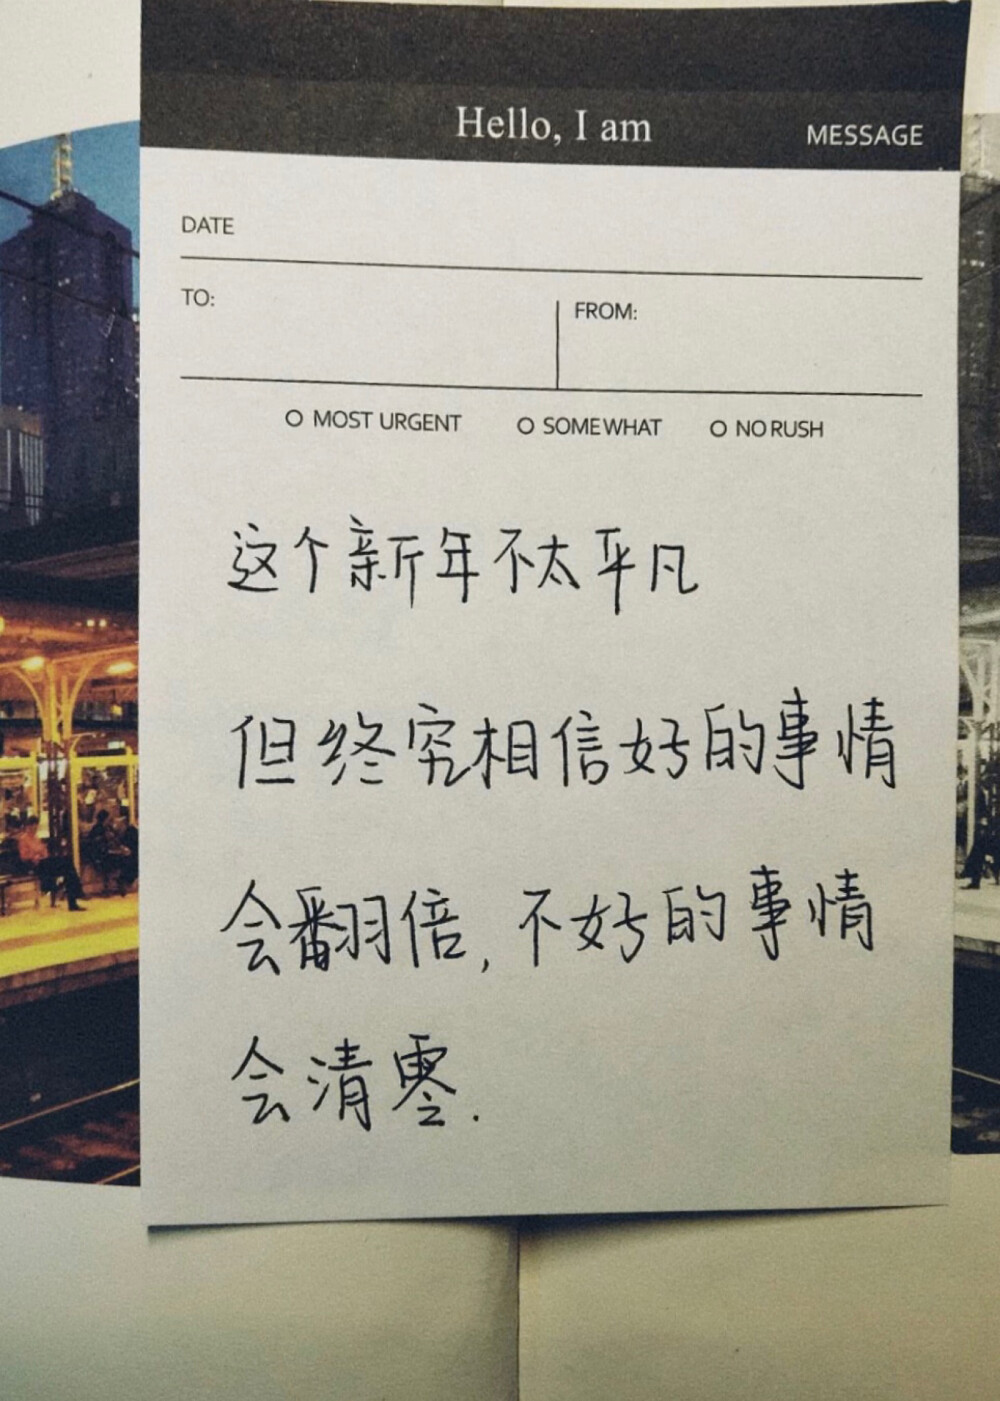 Hello, I am
MESSAGE
DATE
TO:
FROM:
MOST URGENT
SOMEWHAT
NO RUSH
这个新年不太平凡
但终究相信好的事情
会翻倍,不好的事情
会清零.